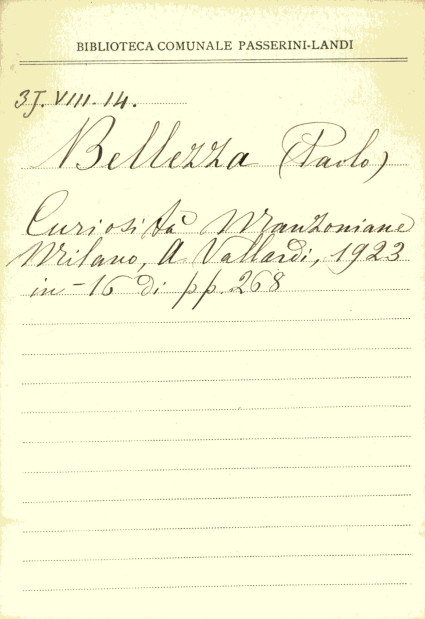 BIBLIOTECA COMUNALE PASSERINI-LANDI
3J.VIII.14.
Bellezza (Paolo)
Curiosità Manzoniane
Milano, A Vallardi, 1923
in-16 di pp. 268